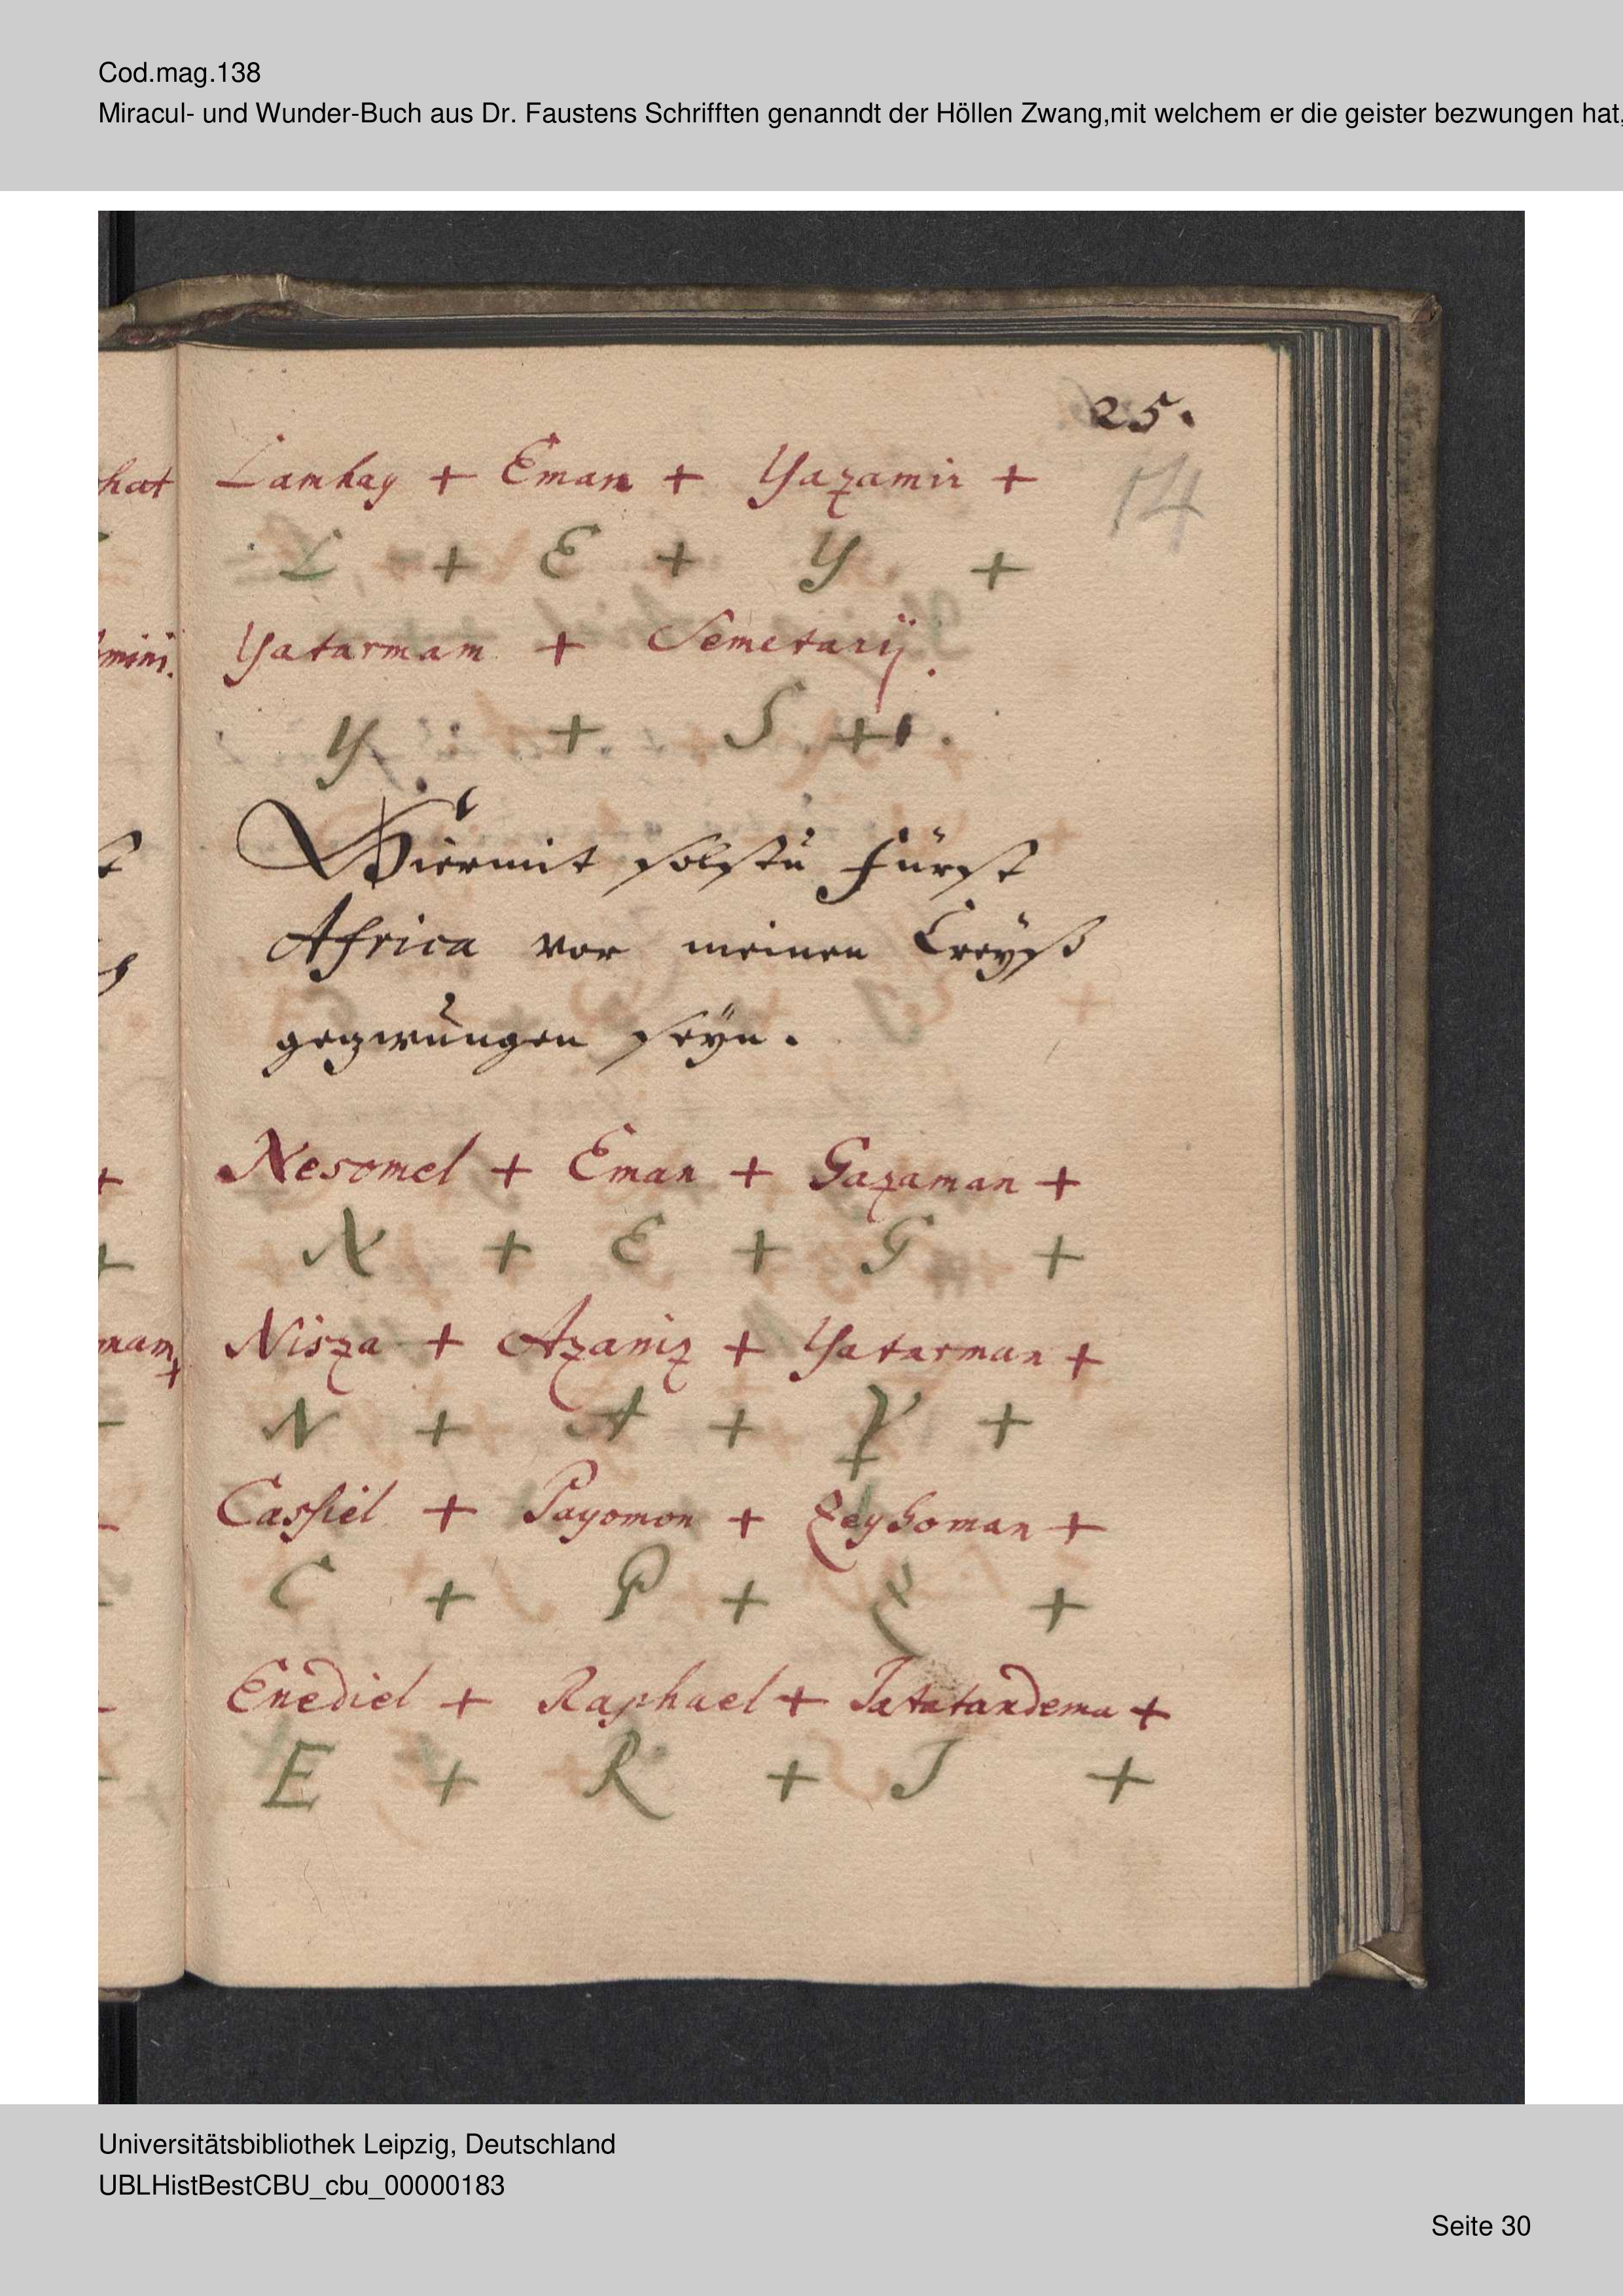 Cod.mag.138
Miracul- und Wunder-Buch aus Dr. Faustens Schrifften genanndt der Höllen Zwang,mit welchem er die geister bezwungen hat,
25.
14
hat Lamhay + Eman + Yazamir +
L + E + Y +
mini. Yatarmam + Semetarij.
Y + S + .
Hiermit solstu Fürst
Africa vor meinen Creyß
gezwungen seyn.
Nesomel + Eman + Gazaman +
N + E + G +
mam + Nisza + Azaniz + Yatarman +
N + A + Y +
Casfiel + Payomon + Zeyhoman +
C + P + Z +
Enediel + Raphael + Tatatandema +
E + R + T +
Universitätsbibliothek Leipzig, Deutschland
UBLHistBestCBU_cbu_00000183
Seite 30